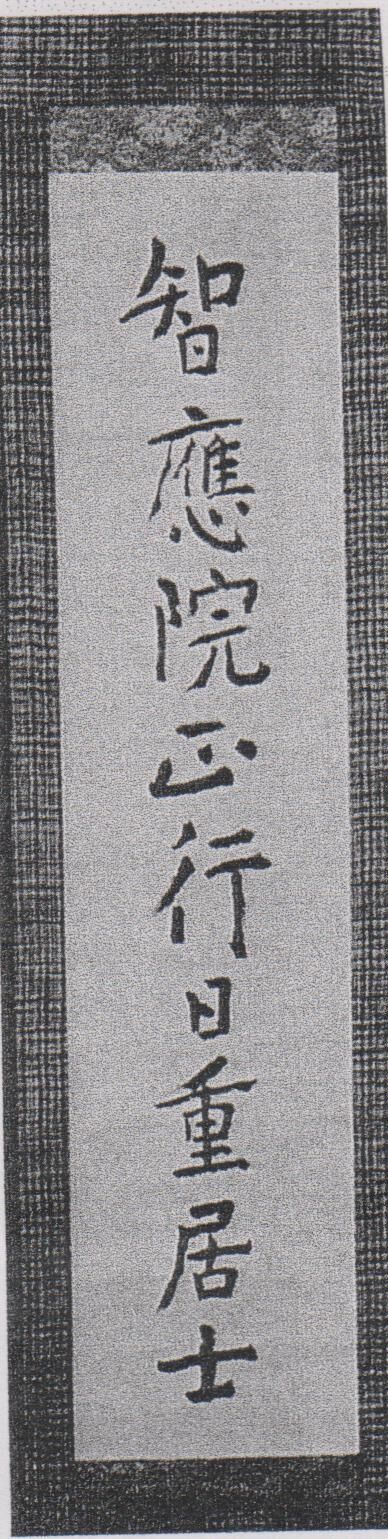 智應院正行日重居士